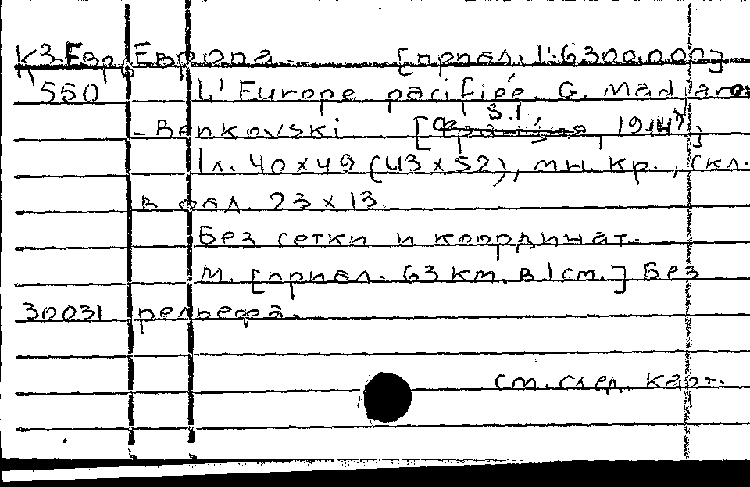 К3-Евр Европа [прибл. 1:6300.000]
550 L' Europe pacifiée. G. Madjarov
S.l
-Benkovski [Франция, 1914?]
1л. 40x49 (43x52), мн. кр., скл.
в обл. 23x13
Без сетки и координат.
М. [прибл. 63 км. в 1 см.] Без
30031 рельефа.
см. след. карт.